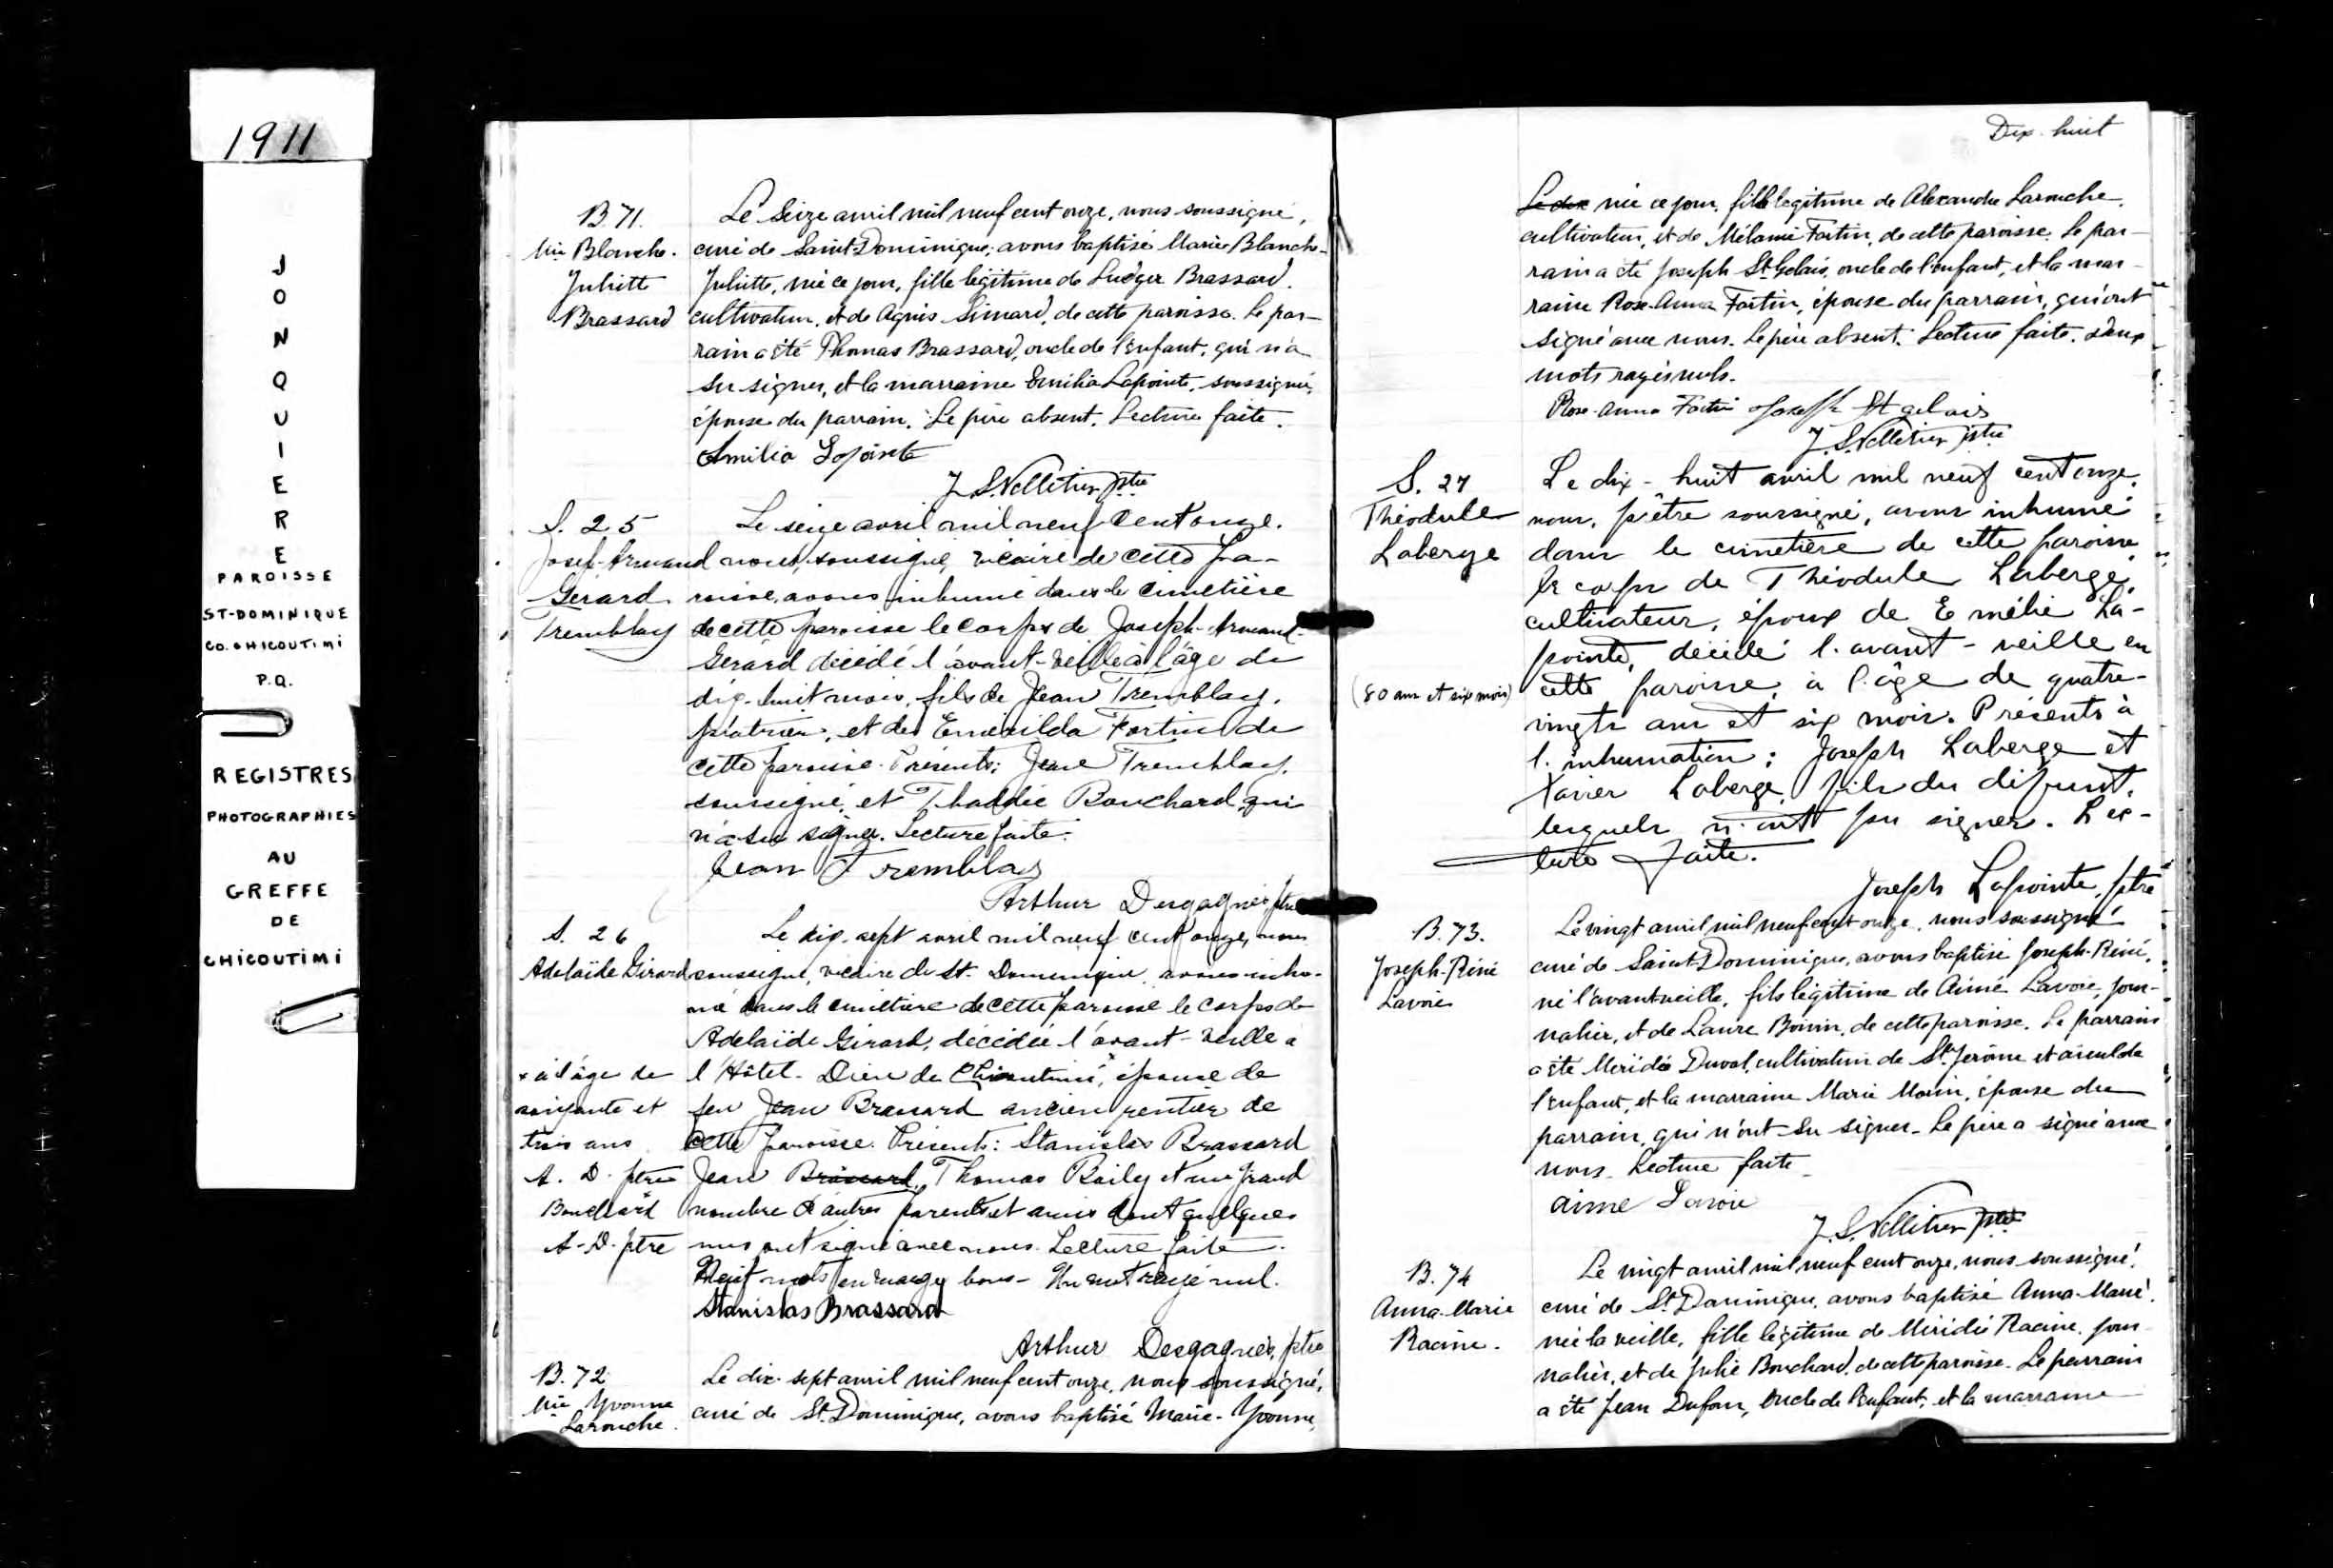 1911
JONQUIERE
PAROISSE
ST-DOMINIQUE
CO. CHICOUTIMI
P.Q.
REGISTRES
PHOTOGRAPHIES
AU
GREFFE
DE
CHICOUTIMI
B. 71.
Mie Blanche.
Juliette
Brassard
Le Seize avril mil neuf cent onze, nous soussigné,
curé de Saint-Dominique, avons baptisé Marie Blanche-
Juliette, née ce jour, fille légitime de Ludger Brassard,
cultivateur, et de Agnès Simard, de cette paroisse. Le par-
rain a été Thomas Brassard, oncle de l'enfant, qui n'a
su signer, et la marraine Emilia Lapointe, soussignée,
épouse du parrain. Le père absent. Lecture faite.
Emilia Lapointe
J. S. Pelletier ptre
S. 25
Josep-Armand
Gérard
Tremblay
Le seize avril mil neuf cent onze,
nous, soussigné, vicaire de cette pa-
roisse, avons inhumé dans le cimetière
de cette paroisse le corps de Joseph-Armand-
Gérard décédé l'avant-veille à l'âge de
dix-huit mois, fils de Jean Tremblay,
et de Emerilda Fortin de
cette paroisse. Présents: Jean Tremblay,
soussigné, et Thaddée Bouchard qui
n'a su signer. Lecture faite.
Jean Tremblay
Arthur Desgagnés ptre
S. 26
Adelaïde Girard
Le dix-sept avril mil neuf cent onze, nous
soussigné, vicaire de St. Dominique avons inhu-
mé dans le cimetière de cette paroisse le corps de
Adelaïde Girard, décédée l'avant-veille à
l'Hôtel-Dieu de Chicoutimi, x épouse de
feu Jean Brassard ancien rentier de
cette paroisse. Présents: Stanislas Brassard
Jean Brassard, Thomas Baily et un grand
nombre d'autres parents et amis dont quelques
uns ont signé avec nous. Lecture faite.
Neuf mots en marge bons - Un mot rayé nul.
x à l'âge de
soixante et
trois ans
A. D. ptre
Bouchard
A. D. ptre
Stanislas Brassard
Arthur Desgagnés, ptre
B. 72
Mie Yvonne
Larouche.
Le dix-sept avril mil neuf cent onze, nous soussigné,
curé de St. Dominique, avons baptisé Marie-Yvonne,
Dix-huit
Le dix née ce jour, fille légitime de Alexandre Larouche,
cultivateur, et de Mélanie Fortin, de cette paroisse. Le par-
rain a été Joseph St Gelais, oncle de l'enfant, et la mar-
raine Rose-Anna Fortin, épouse du parrain, qui ont
signé avec nous. Le père absent. Lecture faite. Deux
mots rayés nuls.
Rose-Anna Fortin Joseph St gelais
J. S. Pelletier ptre
S. 27
Théodule
Laberge
(80 ans et six mois)
Le dix-huit avril mil neuf cent onze,
nous, prêtre soussigné, avons inhumé
dans le cimetière de cette paroisse
le corps de Théodule Laberge,
cultivateur, époux de Emélie La-
pointe, décédé l'avant-veille en
cette paroisse, à l'âge de quatre-
vingts ans et six mois. Présents à
l'inhumation: Joseph Laberge et
Xavier Laberge, fils du défunt,
lesquels n'ont pu signer. Lec-
ture faite.
Joseph Lapointe, ptre
B. 73.
Joseph-Réné
Lavoie
Le vingt avril mil neuf cent onze, nous soussigné
curé de Saint-Dominique, avons baptisé Joseph-Réné,
né l'avant veille, fils légitime de Aimé Lavoie, jour-
nalier, et de Laure Boivin, de cette paroisse. Le parrain
a été Méridée Duval, cultivateur de St Jérôme et aïeul de
l'enfant, et la marraine Marie Morin, épouse du
parrain, qui n'ont su signer. Le père a signé avec
nous. Lecture faite
Aimé Lavoie
J. S. Pelletier ptre
B. 74
Anna-Marie
Racine.
Le vingt avril mil neuf cent onze, nous soussigné,
curé de St Dominique, avons baptisé Anna-Marie,
née la veille, fille légitime de Méridée Racine, jour-
nalier, et de Julie Bouchard, de cette paroisse. Le parrain
a été Jean Dufour, oncle de l'enfant, et la marraine